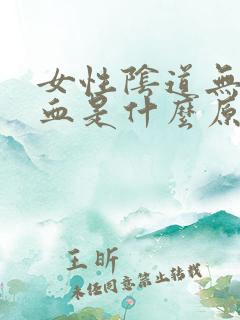 女性陰道無
血是什麼原
王昕
未经同意禁止转载